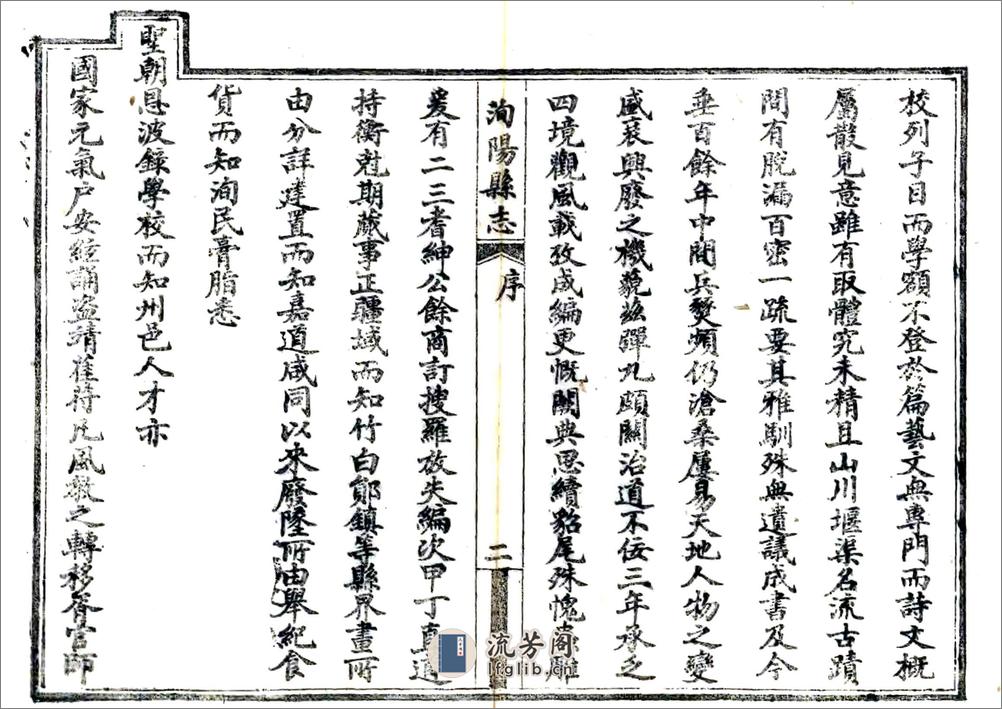 校列子目而學額不登於篇藝文無專門而詩文概
屬散見意雖有取體究未精且山川堰渠名流古蹟
間有脫漏百密一疏要其雅馴殊無遺議成書及今
垂百餘年中間兵燹頻仍滄桑屢易天地人物之變
盛衰興廢之機藐茲彈丸頗關治道不佞三年承之
四境觀風載攷成編更慨闕典思續貂尾殊愧
洵陽縣志
序
二
爰有二三耆紳公餘商訂搜羅放失編次甲丁直道
持衡尅期蕆事正疆域而知竹白鄖鎮等縣界畫所
由分詳建置而知嘉道咸同以來廢墜所由舉紀食
貨而知洵民膏脂悉
聖朝恩波錄學校而知州邑人才亦
國家元氣戶安絃誦盜靖萑苻凡風教之轉移胥官師
流芳阁
lfglib.cn